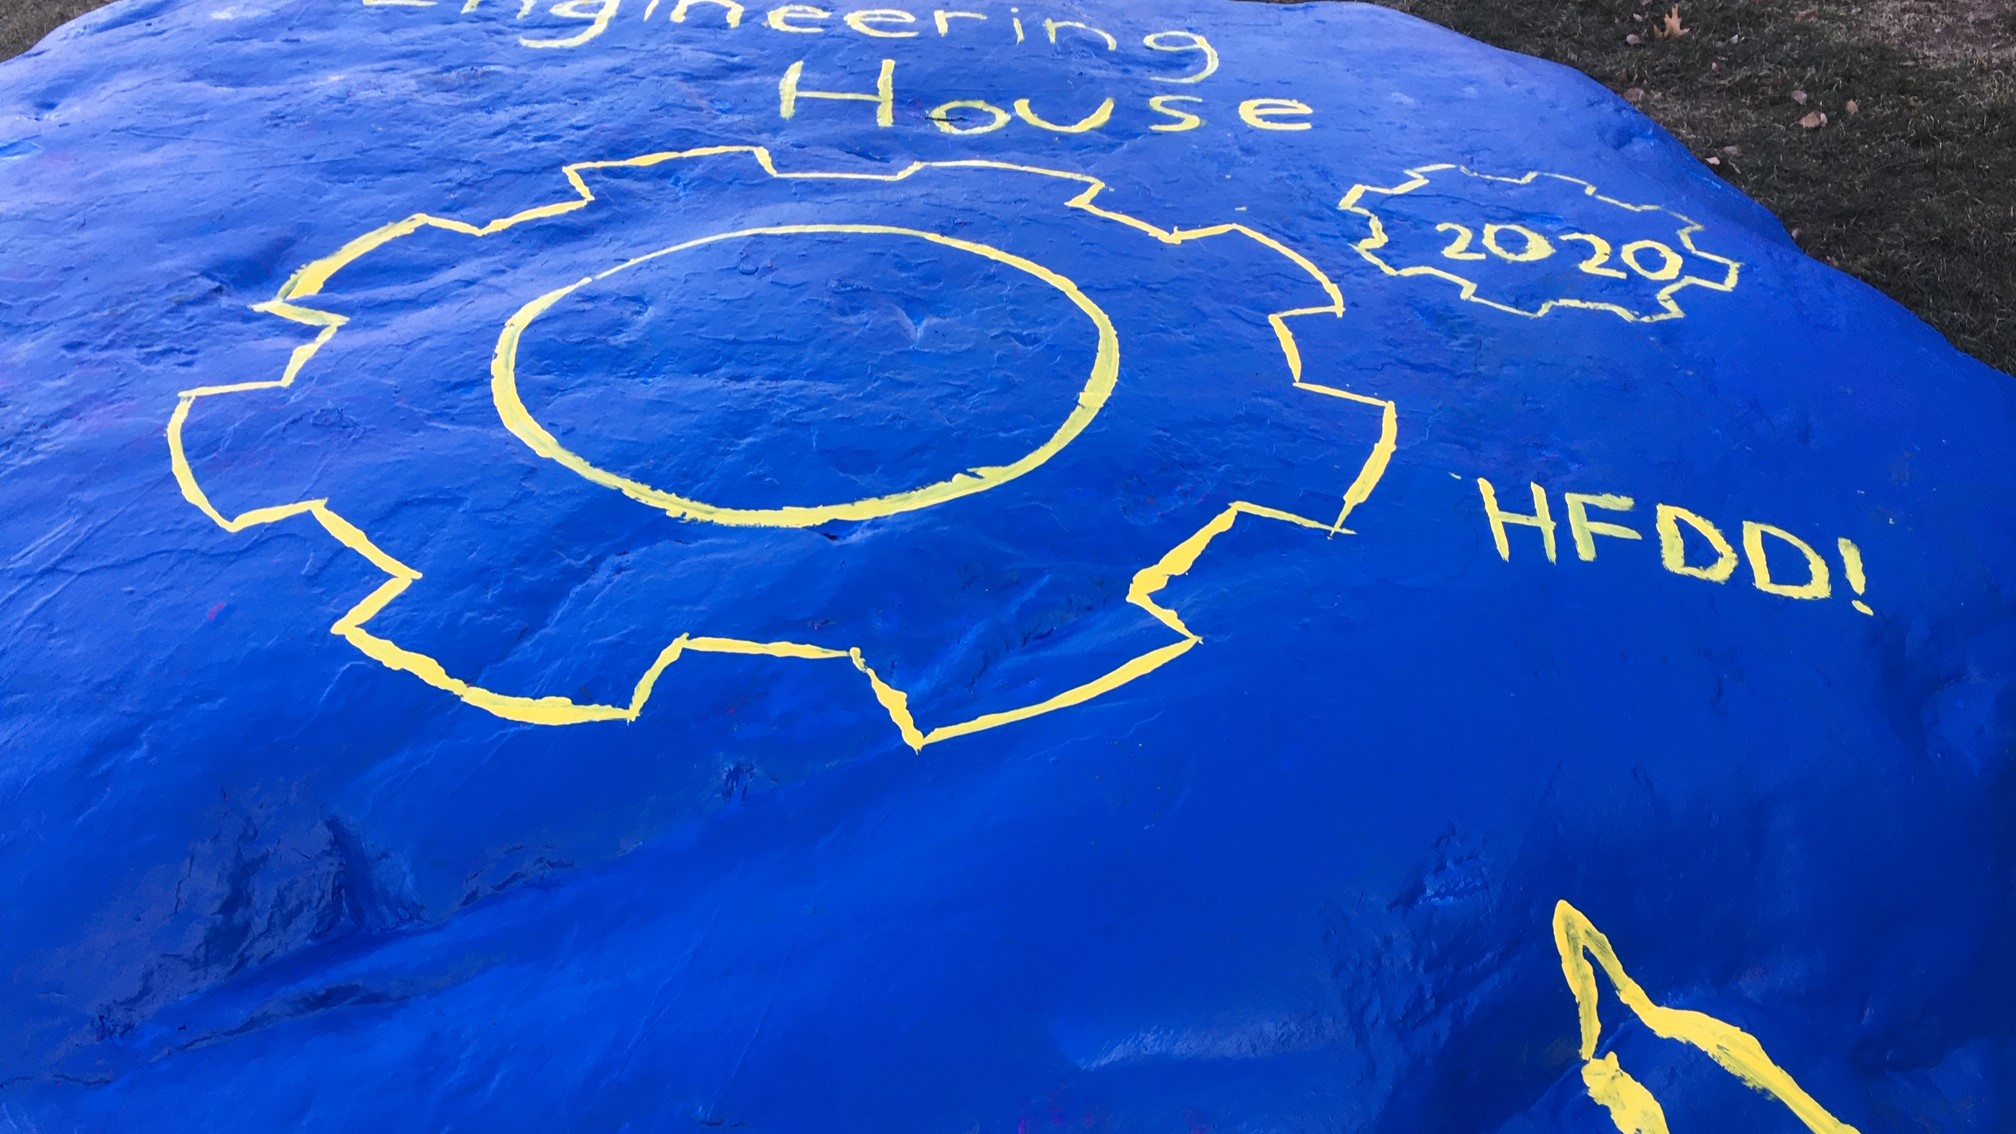 Engineering
House
2020
HFDD!